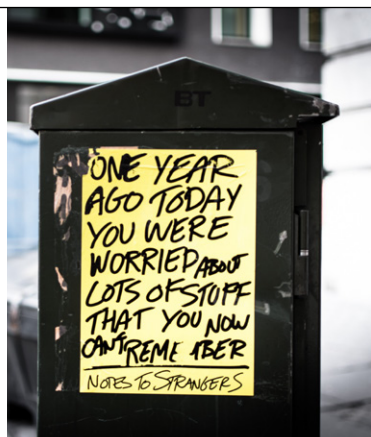 BT
ONE YEAR
AGO TODAY
YOU WERE
WORRIED ABOUT
LOTS OF STUFF
THAT YOU NOW
CAN'T REME BER
NOTES TO STRANGERS